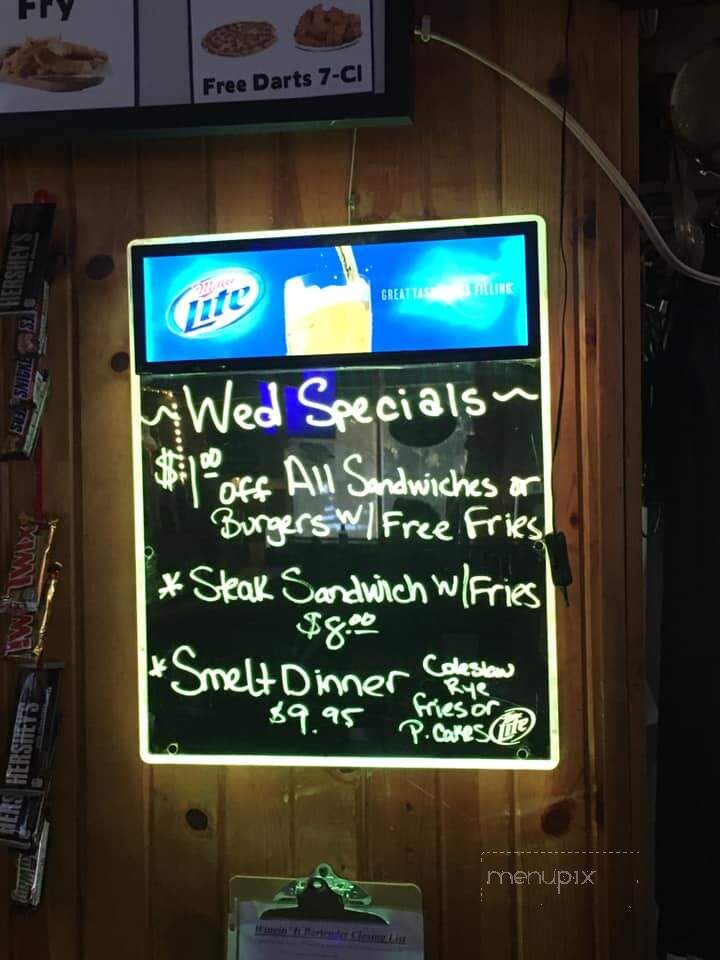 Fry
Free Darts 7-Cl
HERSHEY'S
SNICKE
Miller
Lite
GREAT TAS FILLING
~ Wed Specials ~
$1.00 off All Sandwiches or
Burgers w/ Free Fries
* Steak Sandwich w/ Fries
$8.00
* Smelt Dinner
$9.95
Coleslaw
Rye
fries or
P. Cakes
Lite
TWIX
HERSHEY'S
HERS
menupix
Wingin' It Bartender Closing List